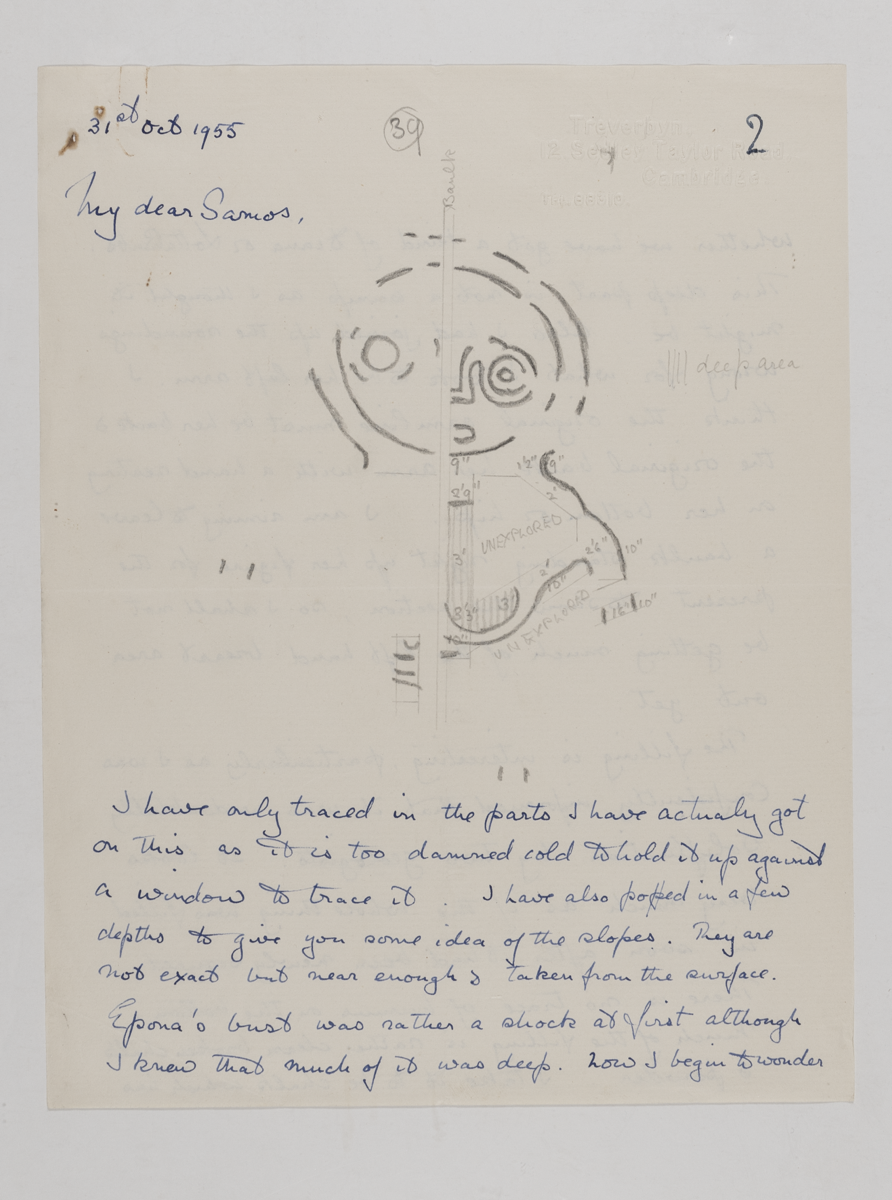 31st Oct 1955
39
2
Treverbyn,
Cambridge.
My dear Samos,
Baulk
|||| deep area
9"
1½"
9"
2'9"
2'
UNEXPLORED
3'
2'6"
10"
2'
10"
3'
UNEXPLORED
10"
I have only traced in the parts I have actualy got
on this as it is too damned cold to hold it up against
a window to trace it. I have also popped in a few
depths to give you some idea of the slopes. They are
not exact but near enough & taken from the surface.
Epona's bust was rather a shock at first although
I knew that much of it was deep. Now I begin to wonder